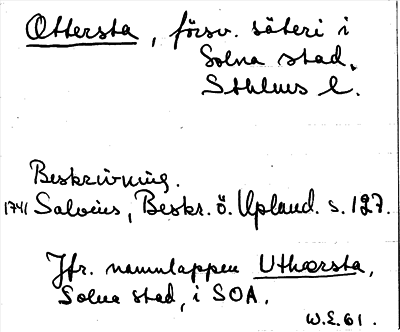 Ottersta, försv. säteri i
Solna stad,
Sthlms l.
Beskrivning.
1741 Salvius, Beskr. ö. Upland. s. 127.
Jfr. namnlappen Uthærsta,
Solna stad, i SOA.
W.E. 61.